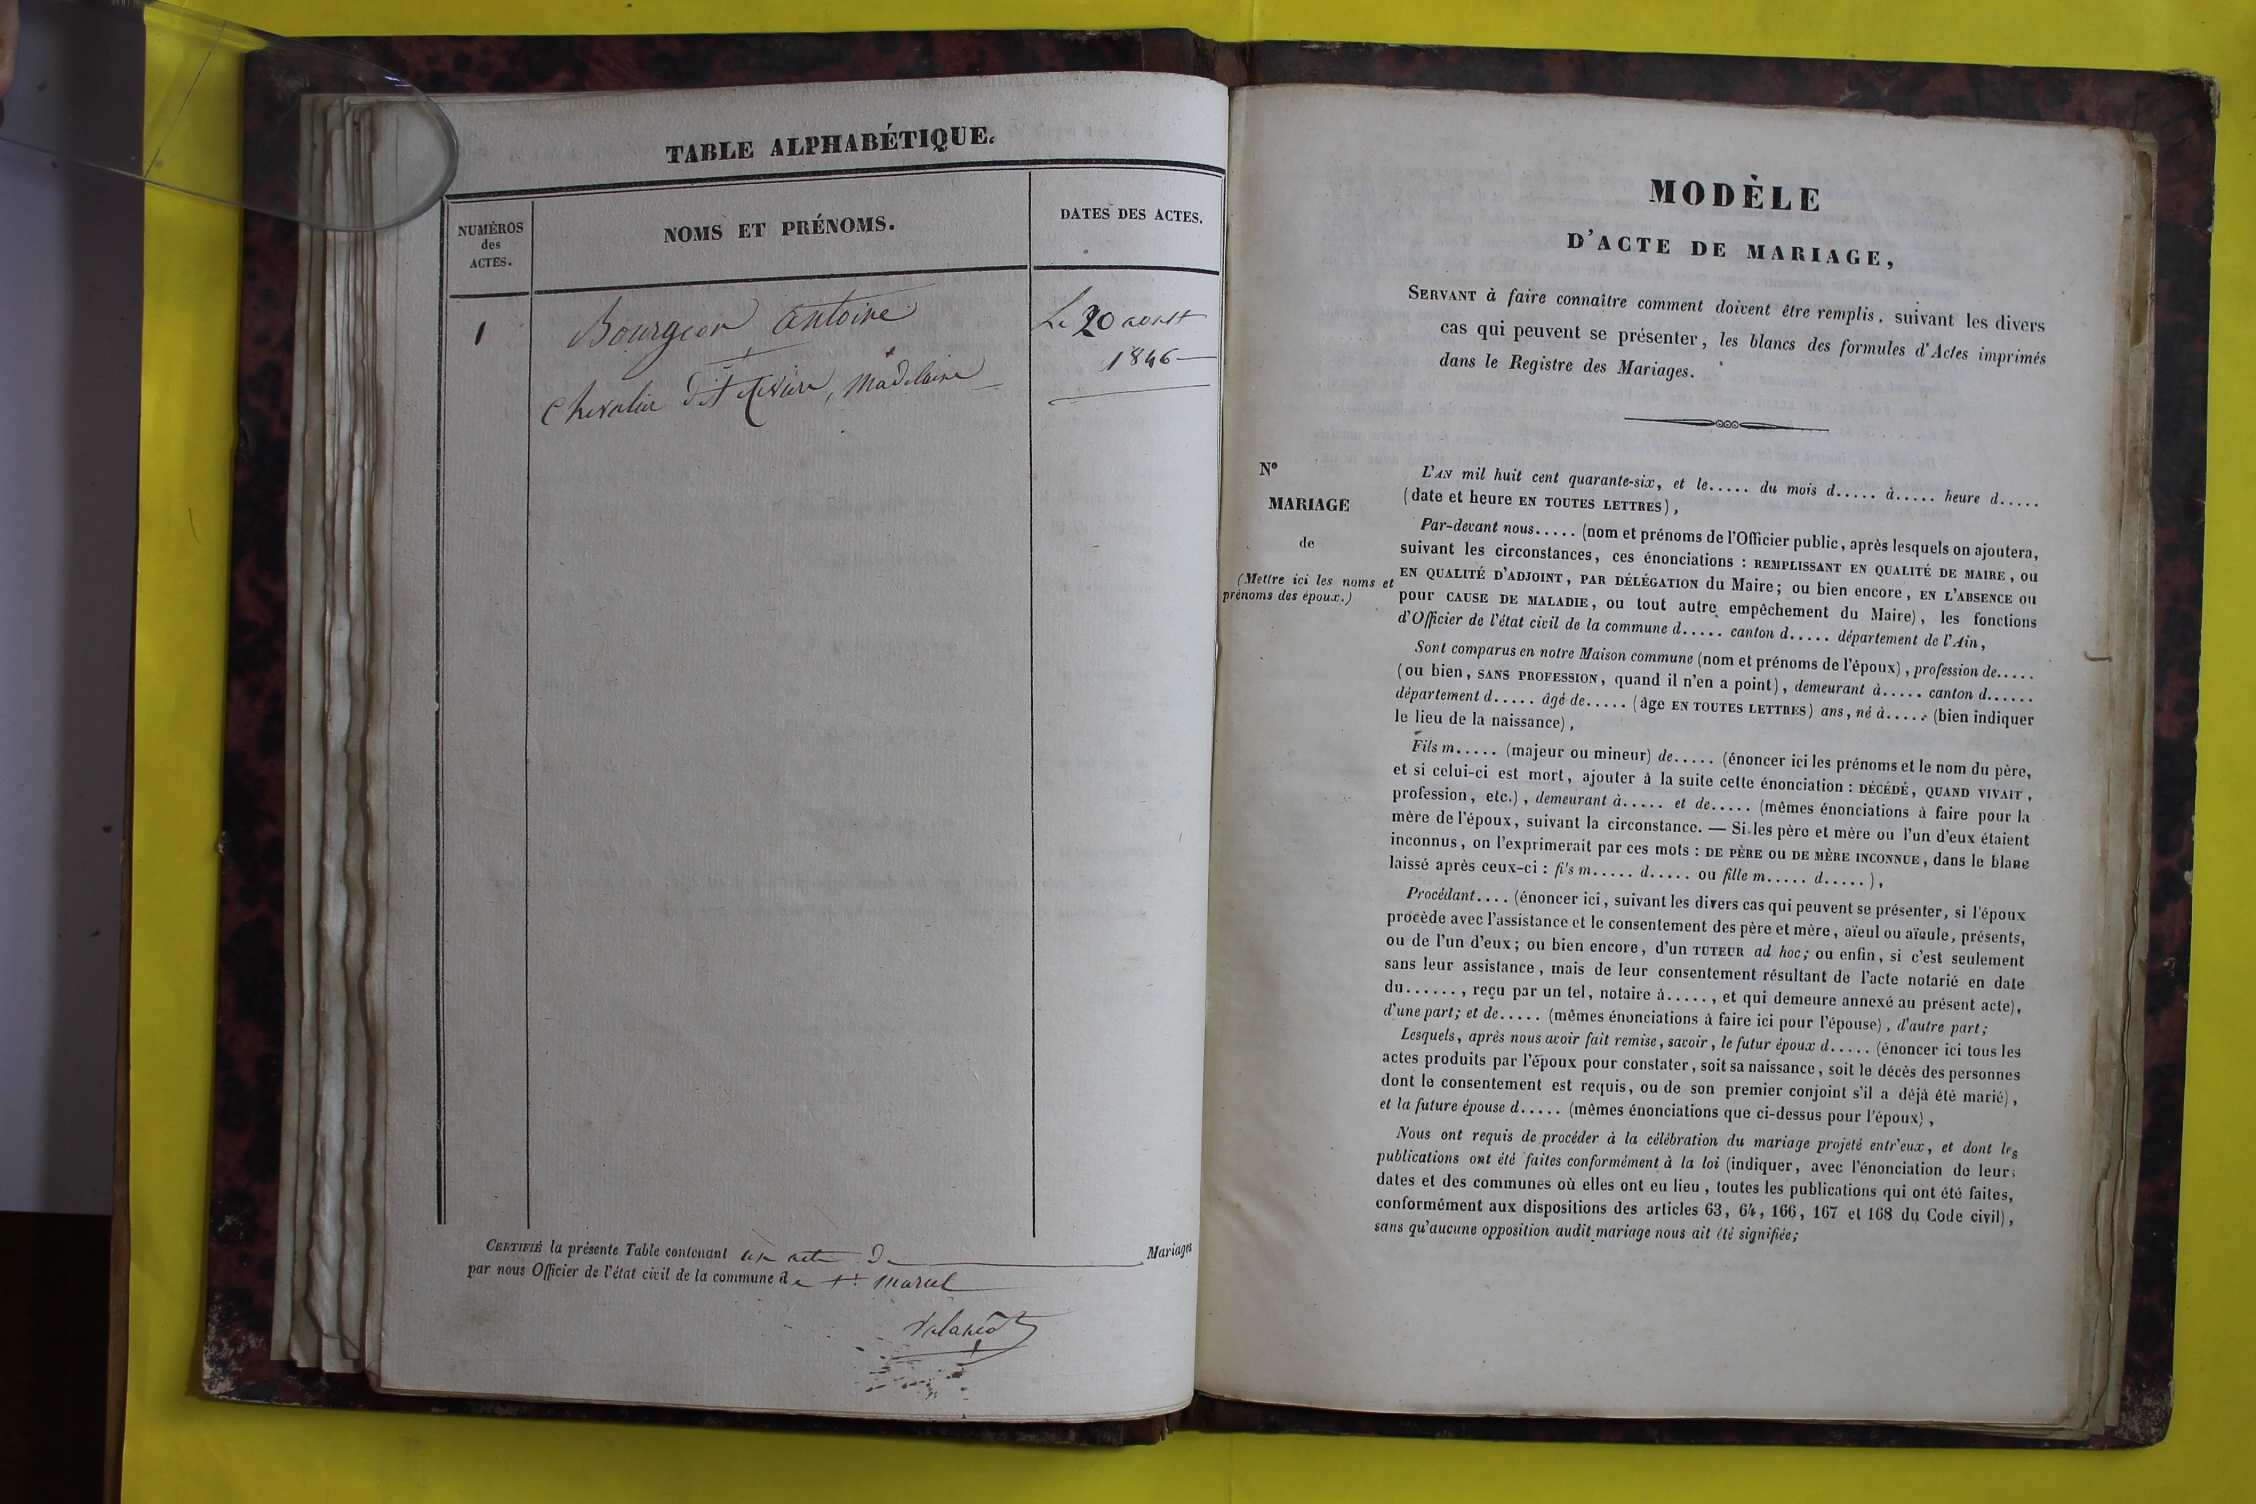 TABLE ALPHABÉTIQUE.
NUMÉROS
des
ACTES.
NOMS ET PRÉNOMS.
DATES DES ACTES.
1
Bourgeon Antoine
Le 20 aoust
1846
et
Chevalier dit Rivière, Madelaine
CERTIFIÉ la présente Table contenant un acte De Mariages
par nous Officier de l'état civil de la commune de St Marcel
MODÈLE
D'ACTE DE MARIAGE,
SERVANT à faire connaître comment doivent être remplis, suivant les divers
cas qui peuvent se présenter, les blancs des formules d'Actes imprimés
dans le Registre des Mariages.
N°
MARIAGE
de
(Mettre ici les noms et
prénoms des époux.)
L'AN mil huit cent quarante-six, et le..... du mois d..... à..... heure d.....
(date et heure EN TOUTES LETTRES),
Par-devant nous..... (nom et prénoms de l'Officier public, après lesquels on ajoutera,
suivant les circonstances, ces énonciations : REMPLISSANT EN QUALITÉ DE MAIRE, OU
EN QUALITÉ D'ADJOINT, PAR DÉLÉGATION du Maire; ou bien encore, EN L'ABSENCE OU
pour CAUSE DE MALADIE, ou tout autre empêchement du Maire), les fonctions
d'Officier de l'état civil de la commune d..... canton d..... département de l'Ain,
Sont comparus en notre Maison commune (nom et prénoms de l'époux), profession de.....
(ou bien, SANS PROFESSION, quand il n'en a point), demeurant à..... canton d......
département d..... âgé de..... (âge EN TOUTES LETTRES) ans, né à..... (bien indiquer
le lieu de la naissance),
Fils m..... (majeur ou mineur) de..... (énoncer ici les prénoms et le nom du père,
et si celui-ci est mort, ajouter à la suite cette énonciation : DÉCÉDÉ, QUAND VIVAIT,
profession, etc.), demeurant à..... et de..... (mêmes énonciations à faire pour la
mère de l'époux, suivant la circonstance. — Si les père et mère ou l'un d'eux étaient
inconnus, on l'exprimerait par ces mots : DE PÈRE OU DE MÈRE INCONNUE, dans le blanc
laissé après ceux-ci : fi's m..... d..... ou fille m..... d.....),
Procédant.... (énoncer ici, suivant les divers cas qui peuvent se présenter, si l'époux
procède avec l'assistance et le consentement des père et mère, aïeul ou aïeule, présents,
ou de l'un d'eux; ou bien encore, d'un TUTEUR ad hoc; ou enfin, si c'est seulement
sans leur assistance, mais de leur consentement résultant de l'acte notarié en date
du......, reçu par un tel, notaire à....., et qui demeure annexé au présent acte),
d'une part; et de..... (mêmes énonciations à faire ici pour l'épouse), d'autre part;
Lesquels, après nous avoir fait remise, savoir, le futur époux d..... (énoncer ici tous les
actes produits par l'époux pour constater, soit sa naissance, soit le décès des personnes
dont le consentement est requis, ou de son premier conjoint s'il a déjà été marié),
et la future épouse d..... (mêmes énonciations que ci-dessus pour l'époux),
Nous ont requis de procéder à la célébration du mariage projeté entr'eux, et dont les
publications ont été faites conformément à la loi (indiquer, avec l'énonciation de leurs
dates et des communes où elles ont eu lieu, toutes les publications qui ont été faites,
conformément aux dispositions des articles 63, 64, 166, 167 et 168 du Code civil),
sans qu'aucune opposition audit mariage nous ait été signifiée;